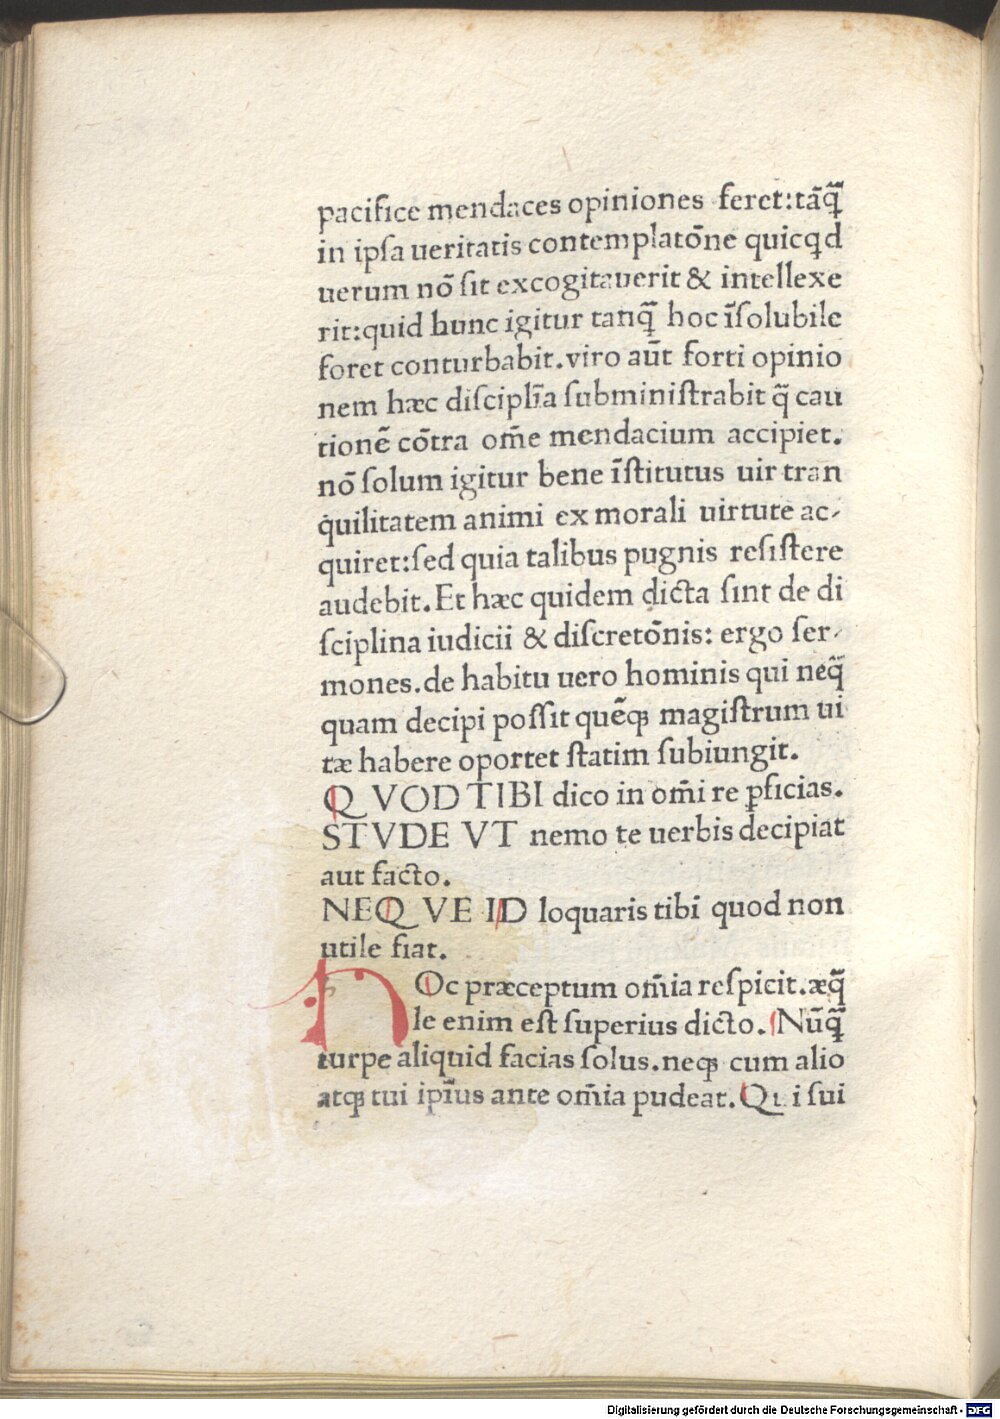 pacifice mendaces opiniones feret:tāq̃
in ipſa ueritatis contemplatōne quicqd
uerum nō ſit excogitauerit & intellexe
rit:quid hunc igitur tanq̃ hoc īſolubile
foret conturbabit.viro aūt forti opinio
nem hæc diſciplīa ſubminiſtrabit q̃ cau
tionē cōtra om̄e mendacium accipiet.
nō ſolum igitur bene īſtitutus uir tran
quilitatem animi ex morali uirtute ac-
quiret:ſed quia talibus pugnis reſiſtere
audebit.Et hæc quidem dicta ſint de di
ſciplina iudicii & diſcretōnis: ergo ſer-
mones.de habitu uero hominis qui neq̃
quam decipi poſſit quēqꝫ magiſtrum ui
tæ habere oportet ſtatim ſubiungit.
QVOD TIBI dico in om̄i re ꝑficias.
STVDE VT nemo te uerbis decipiat
aut facto.
NEQVE ID loquaris tibi quod non
utile fiat.
HOc præceptum om̄ia reſpicit.æq̃
le enim eſt ſuperius dicto. Nūq̃
turpe aliquid facias ſolus.neqꝫ cum alio
atqꝫ tui ipīus ante om̄ia pudeat.Qui ſui
Digitalisierung gefördert durch die Deutsche Forschungsgemeinschaft - DFG